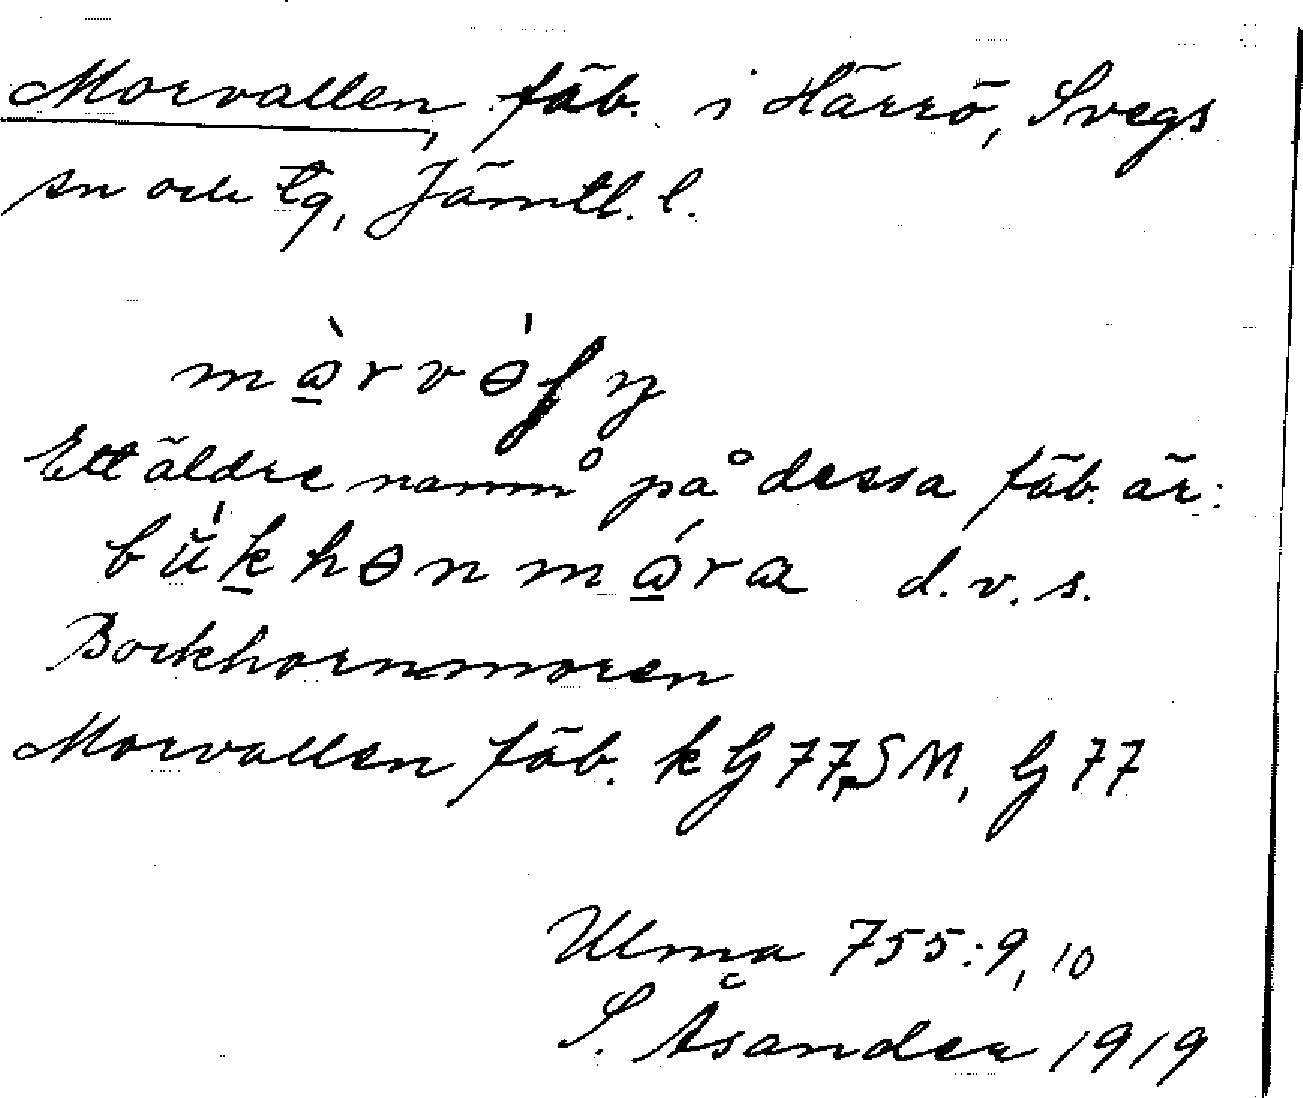 Morvallen, fäb. i Härrö, Svegs
sn och tg, Jämtl. l.
Ett äldre namn på dessa fäb. är:
d. v. s.
Bockhornmoren
Morvallen fäb. k G 77 SM, G 77
Ulma 755:9, 10
S. Åsander 1919